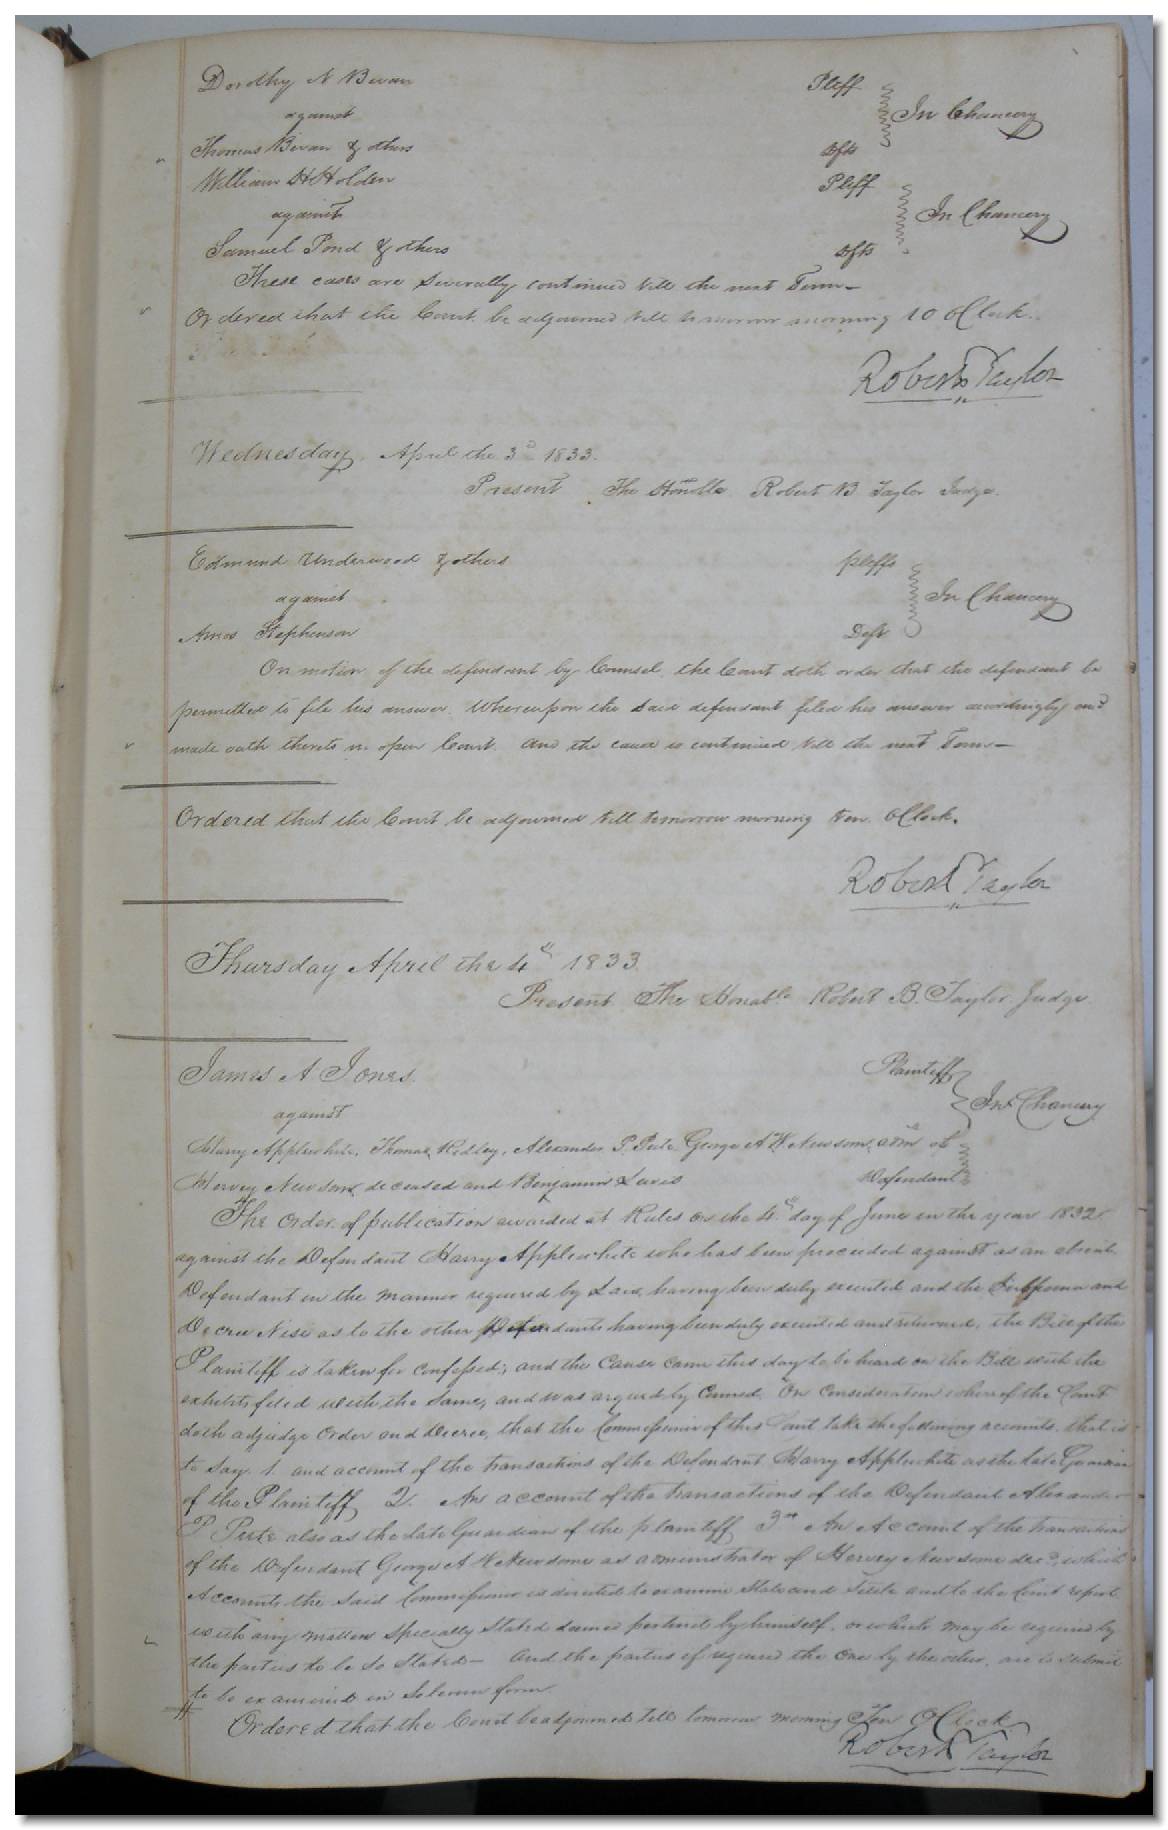 Dorothy N Bivan Pleff
against In Chancery
Thomas Bivan & others Dfts
William H Holden Pleff
against In Chancery
Samuel Pond & others Dfts
These cases are Severally continued till the next Term—
Ordered that the Court be adjourned till to morrow morning 10 OClock.
Robert B Taylor
Wednesday, April the 3d 1833.
Present The Honble Robert B Taylor Judge.
Edmund Underwood & others pleffs
against In Chancery
Amos Stephenson Deft
On motion of the defendant by Counsel, the Court doth order that the defendant be
permitted to file his answer. Whereupon the said defendant filed his answer accordingly and
made oath thereto in open Court. and the cause is continued till the next Term—
Ordered that the Court be adjourned till tomorrow morning ten OClock.
Robert B Taylor
Thursday April the 4th 1833
Present The Honable Robert B. Taylor Judge
James A Jones Plaintiff
against In Chancery
Harry Applewhite, Thomas Ridley, Alexander P. Peete George A W Newsom, adm of
Hervey Newsom, deceased and Benjamin Lewis Defendants
The Order of publication awarded at Rules on the 4th day of June in the year 1832
against the Defendant Harry Applewhite who has been proceeded against as an absent
Defendant in the manner required by Law, having been duly executed and the Subpoena and
Decree Nisi as to the other Defendants having been duly executed and returned, the Bill of the
Plaintiff is taken for confessed; and the Cause came this day to be heard on the Bill with the
exhibits filed with the Same, and was argued by Counsel. On Consideration whereof the Court
doth adjudge Order and Decree, that the Commissioner of this Court take the following accounts, that is
to Say. 1. and account of the transactions of the Defendant Harry Applewhite as the late Guardian
of the Plaintiff 2. An account of the transactions of the Defendant Alexander
P Peete also as the late Guardian of the plaintiff 3rd An Account of the transactions
of the Defendant George A W Newsome as administrator of Hervey Newsome decd, which
Accounts the Said Commissioner is directed to examine State and Settle and to the Court report
with any matters Specially Stated deemed pertinent by himself, or which may be required by
the parties to be So Stated— And the parties if required the one by the other, are to Submit
to be examined in Solemn form.
Ordered that the Court be adjourned till tomorrow morning Ten OClock
Robert B Taylor